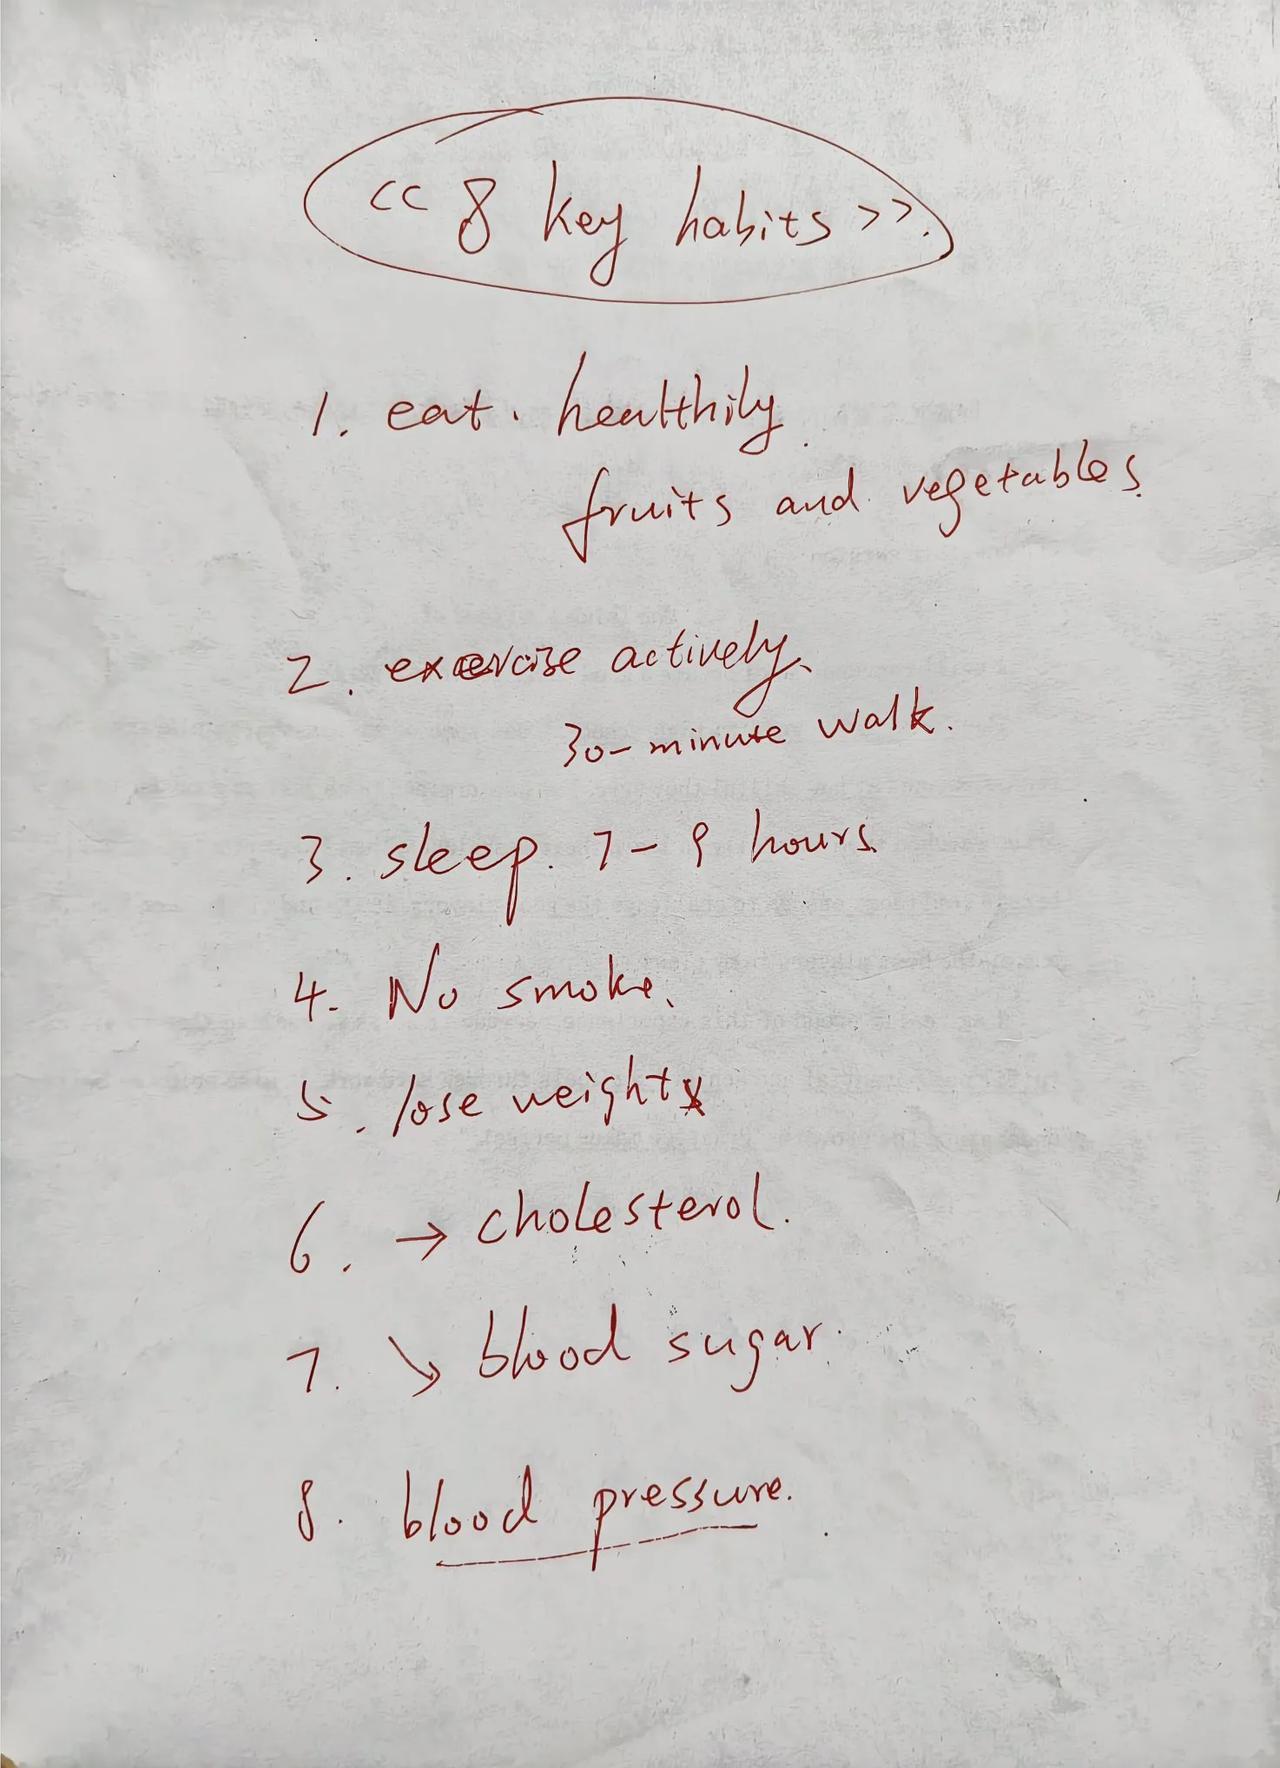 << 8 key habits >>.
1. eat. healthily.
fruits and vegetables.
2. exercise actively.
30-minute walk.
3. sleep. 7-9 hours.
4. No smoke.
5. lose weight
6. → cholesterol.
7. ↘ blood sugar.
8. blood pressure.